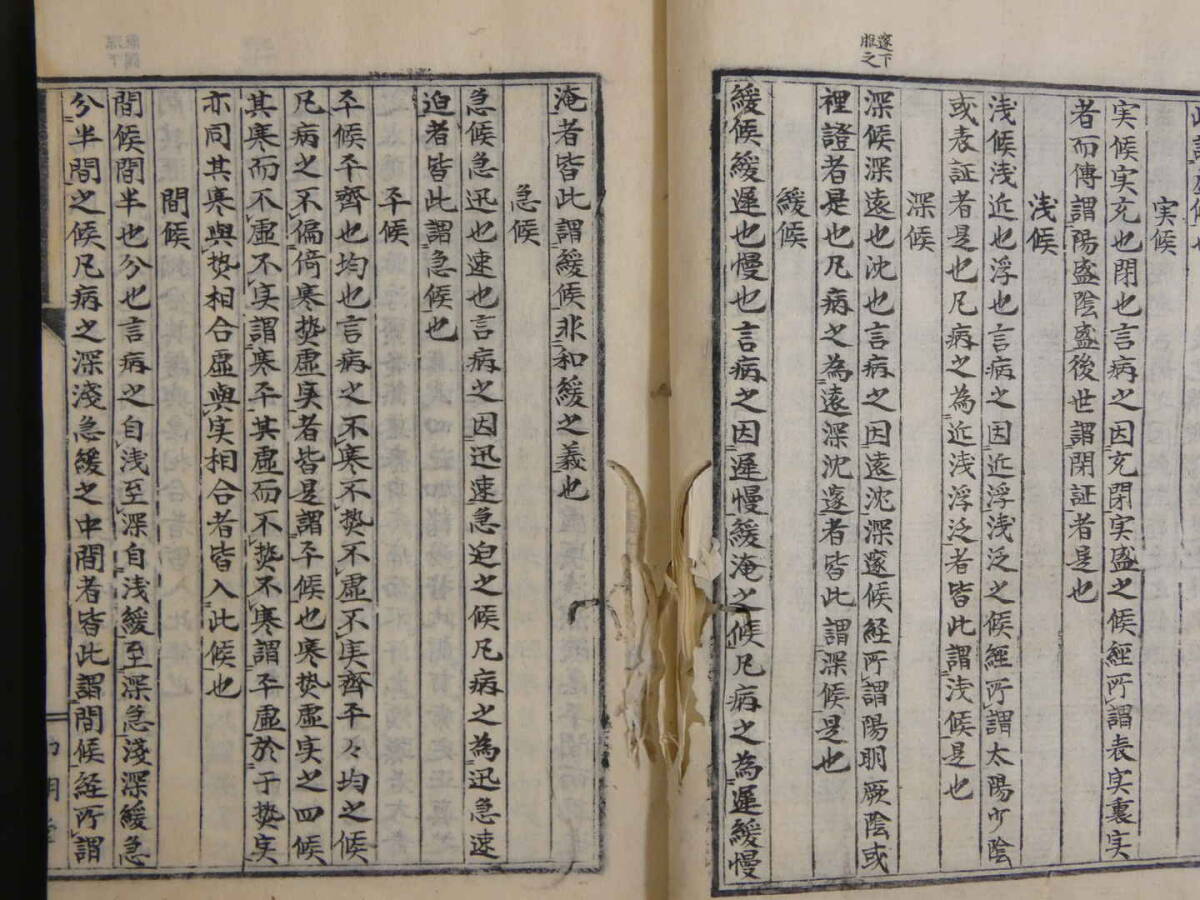 実候
実候実充也閉也言病之因充閉実盛之候経所謂表実裏実
者而傳謂陽盛陰盛後世謂閉証者是也
浅候
浅候浅近也浮也言病之因近浮浅泛之候経所謂太陽少陰
或表証者是也凡病之為近浅浮泛者皆此謂浅候是也
深候
深候深遠也沈也言病之因遠沈深邃候経所謂陽明厥陰或
裡證者是也凡病之為遠深沈邃者皆此謂深候是也
緩候
緩候緩遲也慢也言病之因遲慢緩淹之候凡病之為遲緩慢
邃下
脱之
淹者皆此謂緩候非和緩之義也
急候
急候急迅也速也言病之因迅速急迫之候凡病之為迅急速
迫者皆此謂急候也
平候
平候平齊也均也言病之不寒不㙯不虚不実齊平々均之候
凡病之不偏倚寒㙯虚実者皆是謂平候也寒㙯虚実之四候
其寒而不虚不実謂寒平其虚而不㙯不寒謂平虚於于㙯実
亦同其寒與㙯相合虚與実相合者皆入此候也
間候
間候間半也分也言病之自浅至深自浅緩至深急淺深緩急
分半間之候凡病之深淺急緩之中間者皆此謂間候経所謂